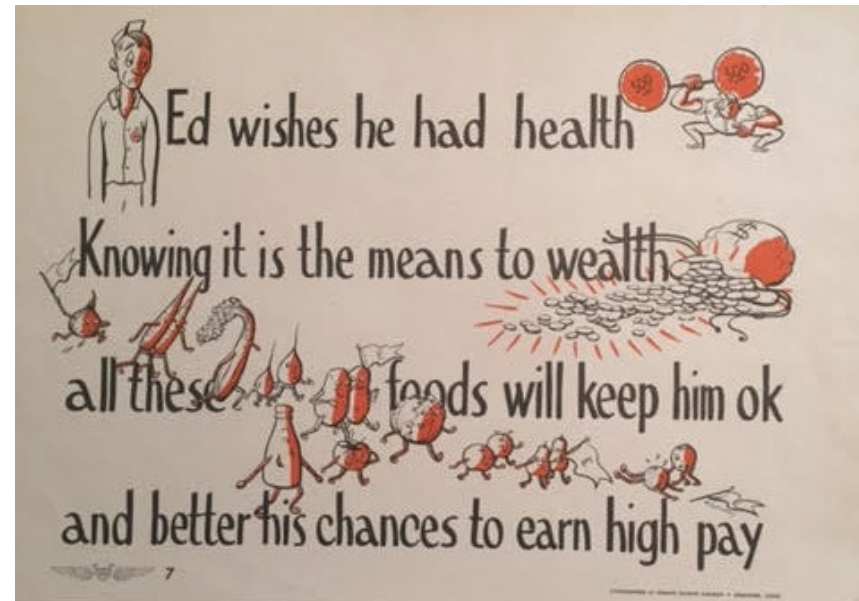 Ed wishes he had health
500 500
Knowing it is the means to wealth
$
all these foods will keep him ok
and better his chances to earn high pay
7